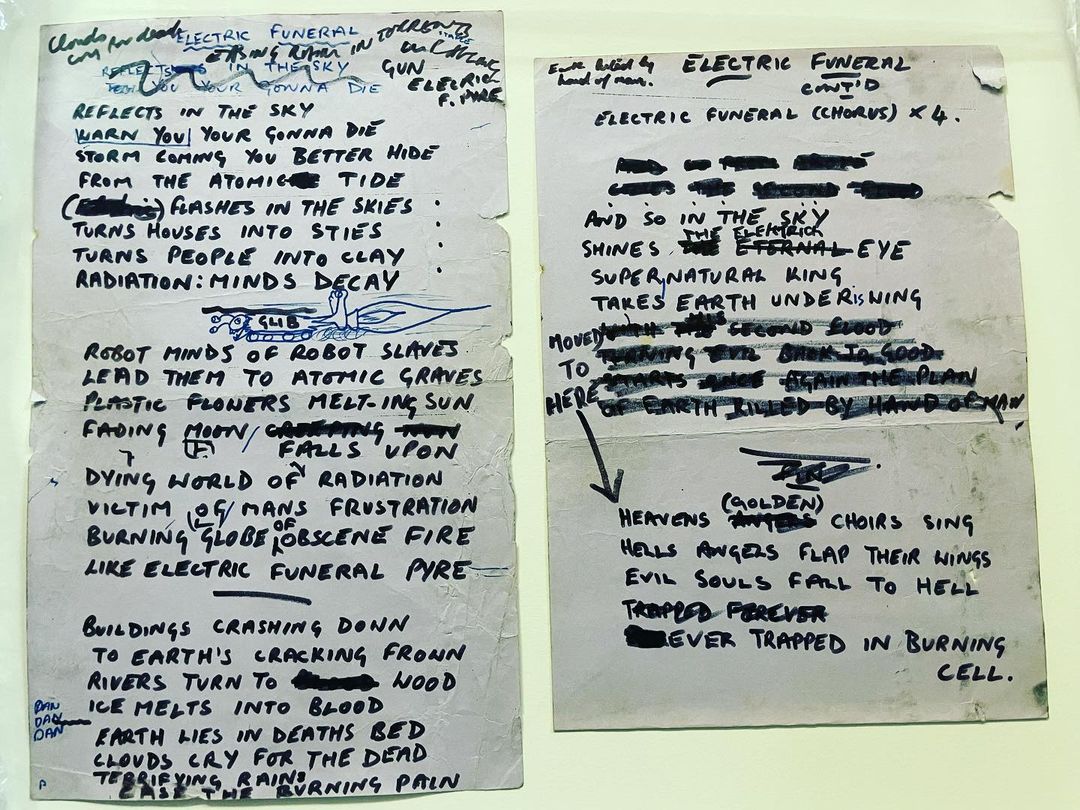 Clouds
cry for dead
ELECTRIC FUNERAL
EASING RAIN IN TORRENTS
GUN
ELECTRIC
F. PYRE
REFLECTS IN THE SKY
YOU YOUR GONNA DIE
REFLECTS IN THE SKY
WARN YOU YOUR GONNA DIE
STORM COMING YOU BETTER HIDE
FROM THE ATOMIC TIDE
FLASHES IN THE SKIES :
TURNS HOUSES INTO STIES
TURNS PEOPLE INTO CLAY
RADIATION: MINDS DECAY
GLIB
ROBOT MINDS OF ROBOT SLAVES
LEAD THEM TO ATOMIC GRAVES
PLASTIC FLOWERS MELT-ING SUN
FADING MOON / CREEPING
FALLS UPON
DYING WORLD OF RADIATION
VICTIM OG/ MANS FRUSTRATION
BURNING GLOBE OF OBSCENE FIRE
LIKE ELECTRIC FUNERAL PYRE
BUILDINGS CRASHING DOWN
TO EARTH'S CRACKING FROWN
RIVERS TURN TO WOOD
ICE MELTS INTO BLOOD
DAN
DAN
DAN
EARTH LIES IN DEATHS BED
CLOUDS CRY FOR THE DEAD
TERRIFYING RAINS
P
EASE THE BURNING PAIN
Earth killed by
hand of man.
ELECTRIC FUNERAL
CONT'D
ELECTRIC FUNERAL (CHORUS) X 4.
AND SO IN THE SKY
SHINES THE ELECTRICK ETERNAL EYE
SUPERNATURAL KING
TAKES EARTH UNDER is WING
WITH HIS SECOND FLOOD
TURNING EVIL BACK TO GOOD.
STARTS ONCE AGAIN THE PLAN
OF EARTH KILLED BY HAND OF MAN
MOVED
TO
HERE
HEAVENS (GOLDEN) ANGELS CHOIRS SING
HELLS ANGELS FLAP THEIR WINGS
EVIL SOULS FALL TO HELL
TRAPPED FOREVER
EVER TRAPPED IN BURNING
CELL.